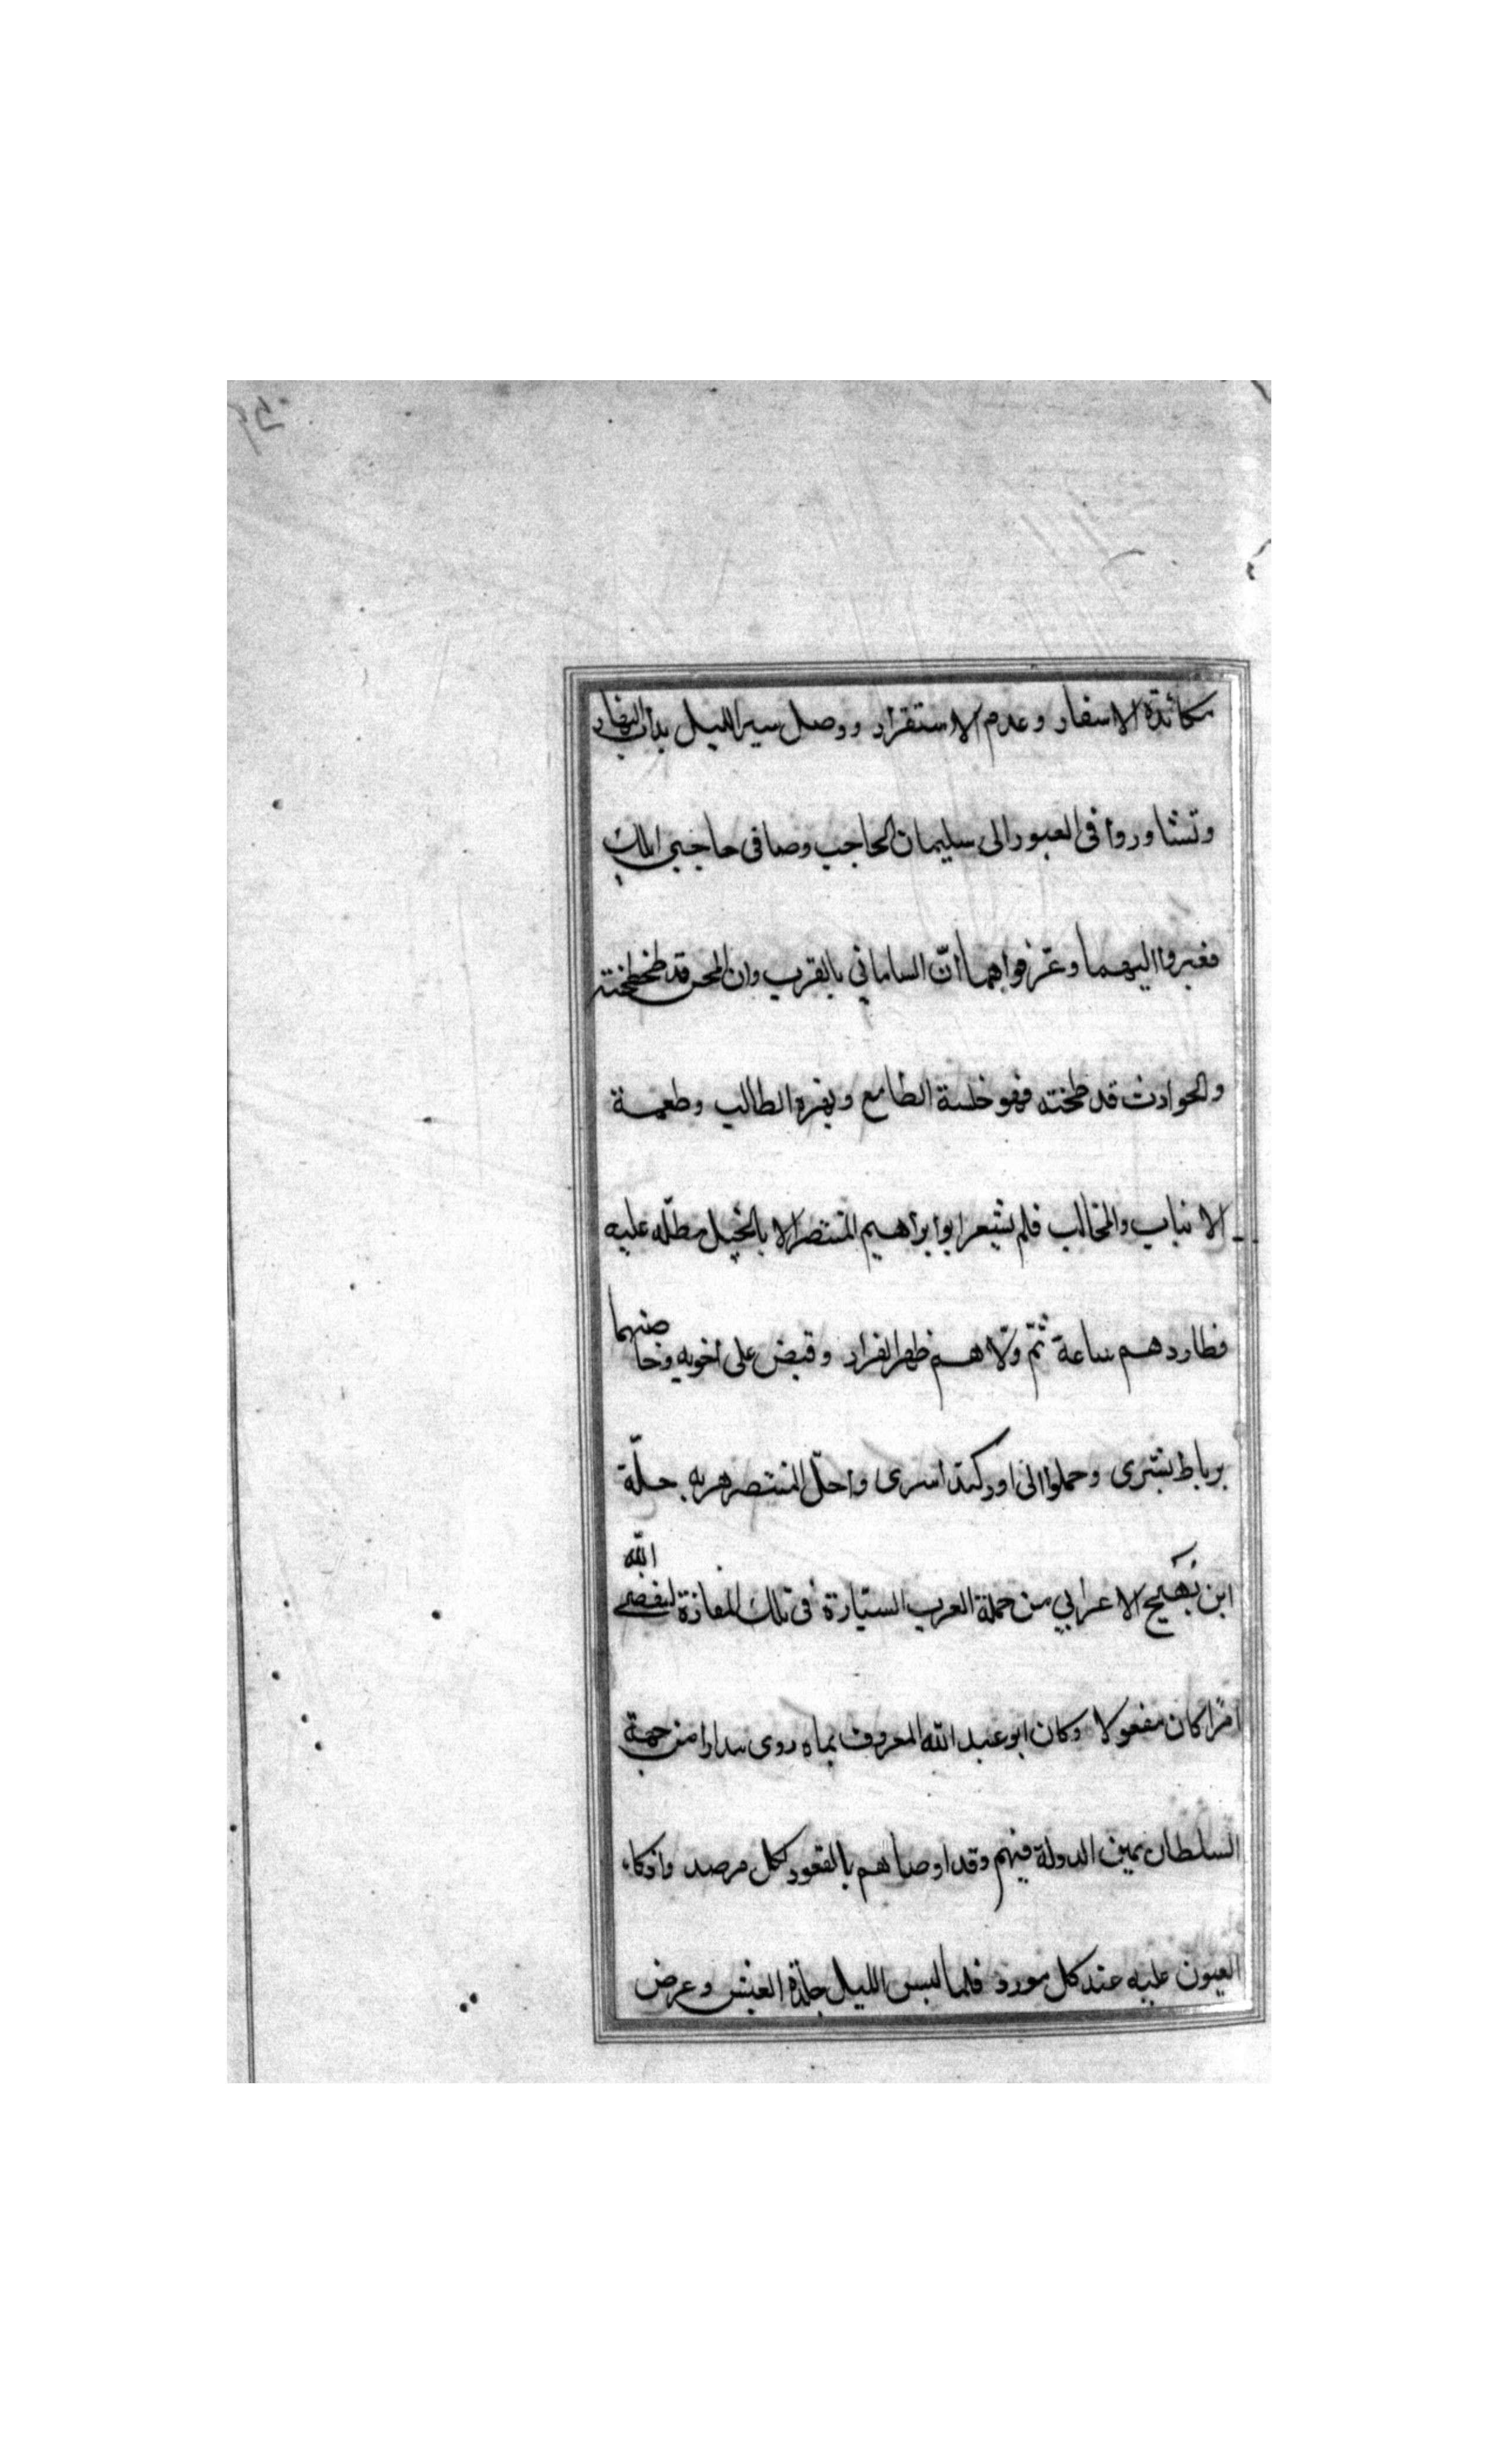 مكائدة الاسفار وعدم الاستقرار ووصل سير الليل بدأب النهار
وتشاوروا فى العبور الى سليمان الحاجب وصافى حاجبى ايلك
فعبروا اليهما وعرّفواهما انّ السامانى بالقرب وان المحن قد طحطحته
والحوادث قد طحنته فهو خلسة الطامع ونهزة الطالب وطعمة
الانياب والمخالب فلم يشعر ابو ابراهيم المنتصر الا بالخيل مطلّه عليه
فطاردهم ساعة ثمّ ولّاهم ظهر الفرار وقبض على اخويه وخاصتهما
برباط بشرى وحملوا الى اوزكند اسرى واحلّ المنتصر هربه حلّة
ابن بُهَيج الاعرابي من جملة العرب السيّارة فى تلك المفازة ليقضى الله
امرًا كان مفعولا وكان ابو عبد الله المعروف بماه روى بندارا من جهة
السلطان يمين الدولة فيهم وقد اوصاهم بالقعود لكل مرصد واذكاء
العيون عليه عند كل مورد فلما لبس الليل جلدة الغبش وعرض